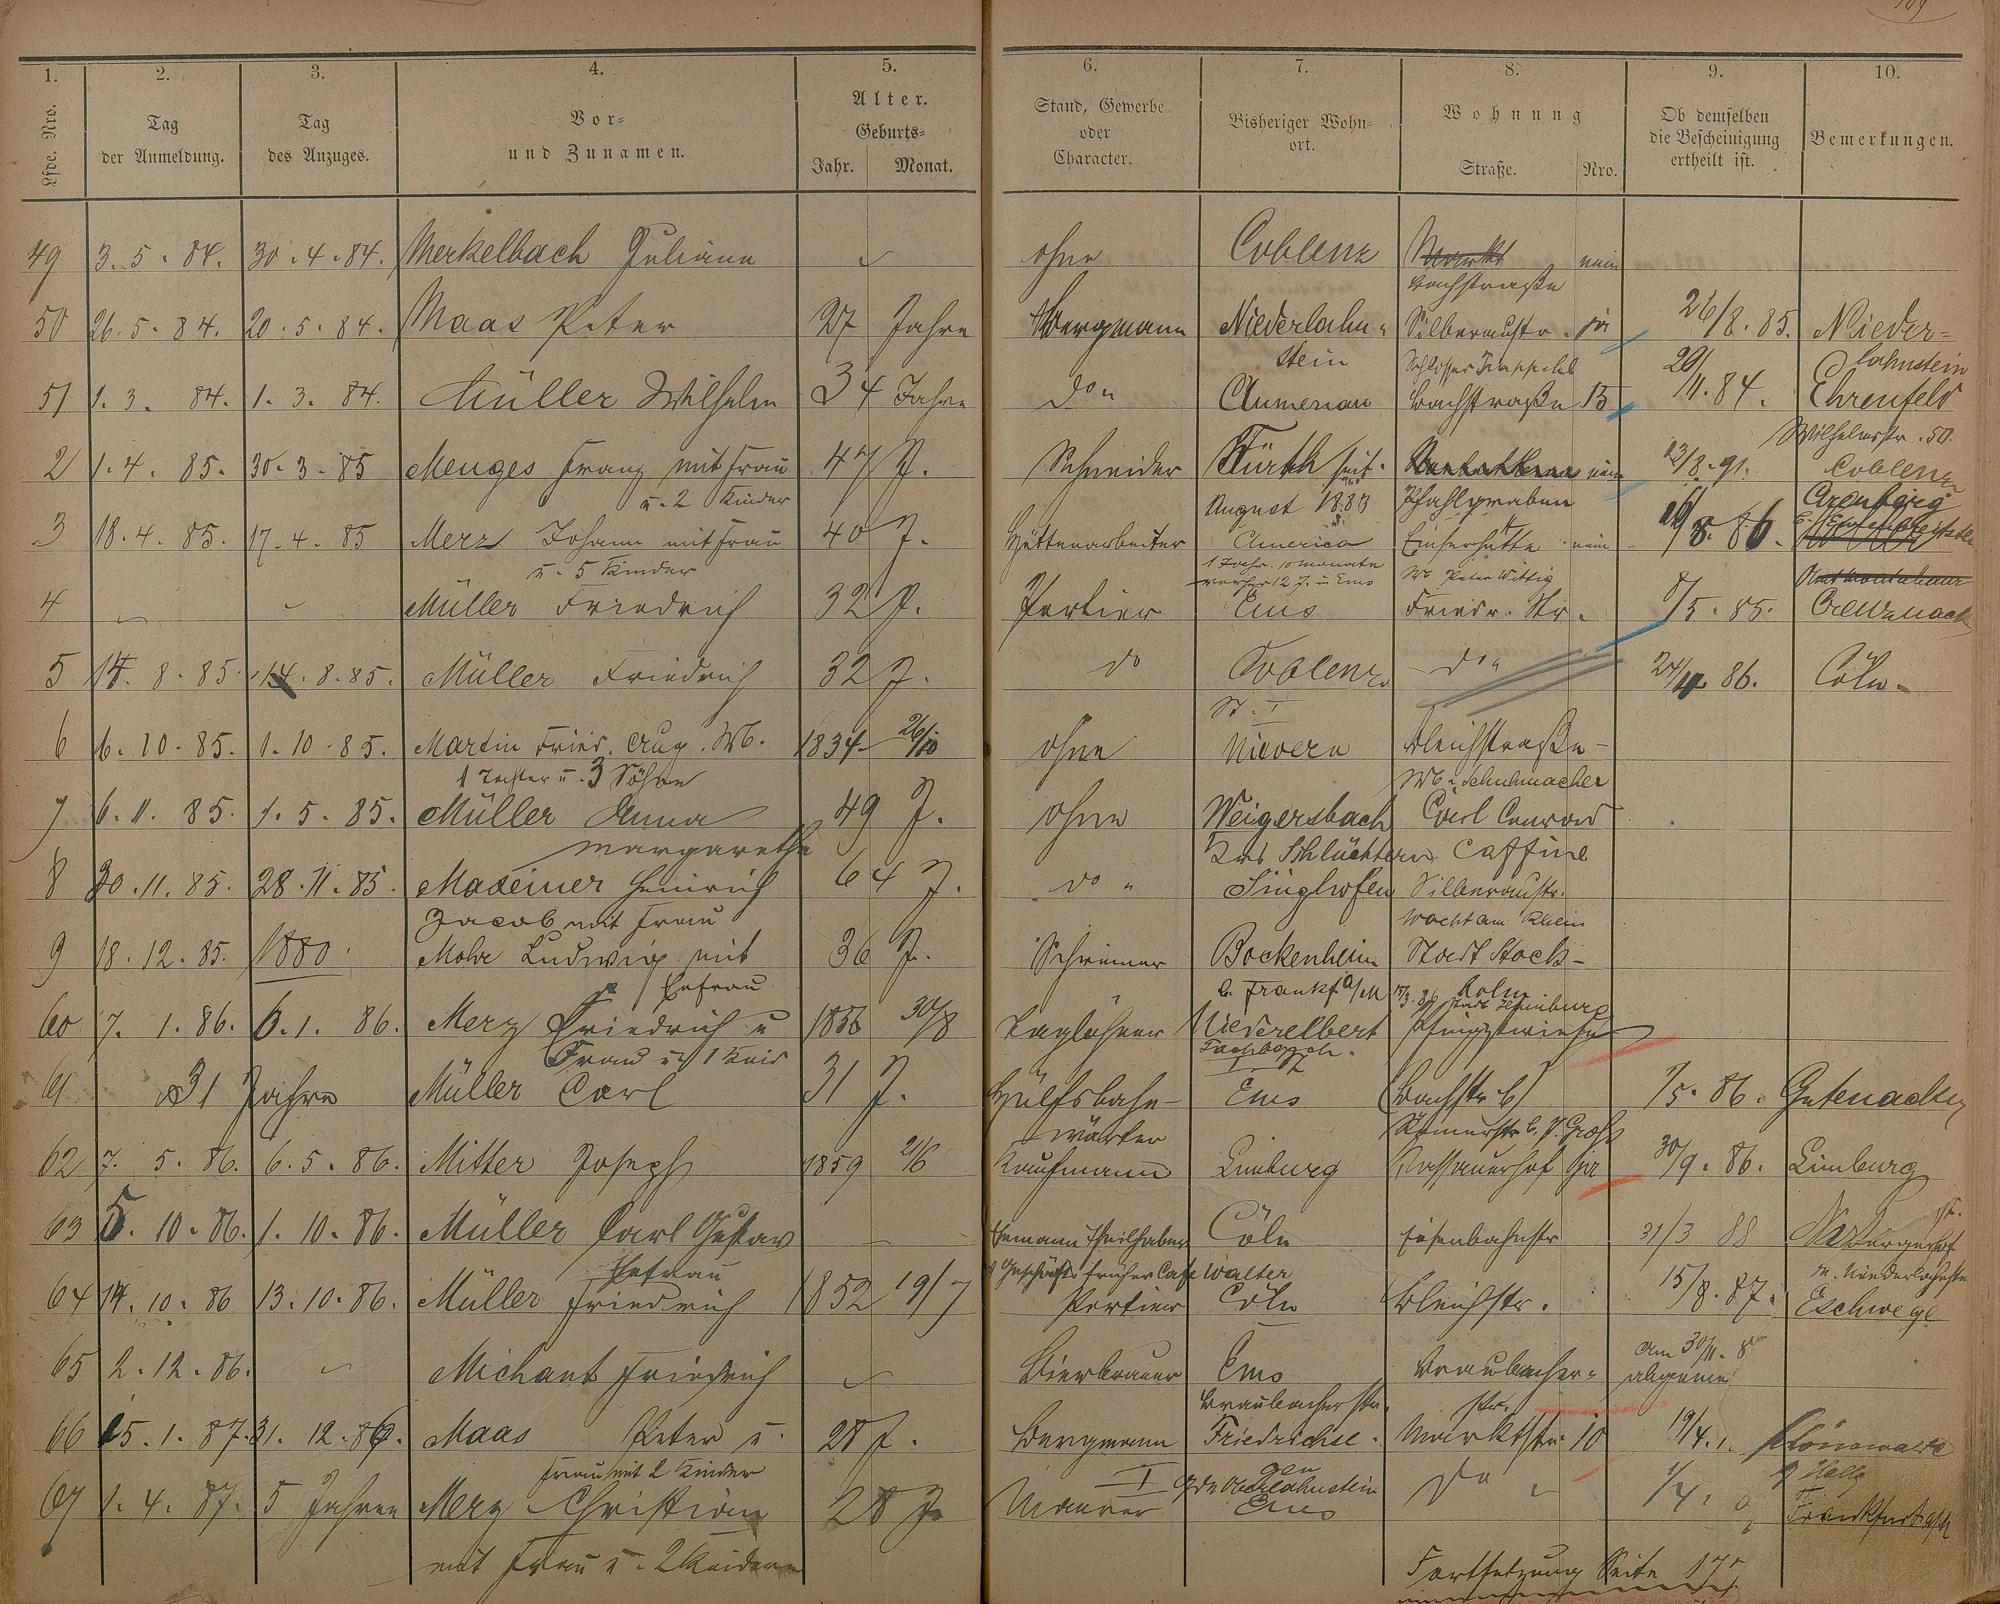 1. 2. 3. 4. 5. 6. 7. 8. 9. 10.
Lfde. Nro.
Tag der Anmeldung.
Tag des Anzuges.
Vor- und Zunamen.
Alter. Geburts- Jahr. Monat.
Stand, Gewerbe oder Character.
Bisheriger Wohnort.
Wohnung Straße. Nro.
Ob demselben die Bescheinigung ertheilt ist.
Bemerkungen.
49 3. 5. 84. 30. 4. 84. Merkelbach Juliane ohne Coblenz Markt nein
Bachstraße
50 26. 5. 84. 20. 5. 84. Maas Peter 27 Jahre Bergmann Niederlahn- Silberaustr. ja 26/8. 85. Nieder-
stein Schlosser lahnstein
51 1. 3. 84. 1. 3. 84. Müller Wilhelm 34 Jahre do Aumenau Bachstraße 15 20/11. 84. Ehrenfeld
Wilhelmstr. 50.
2 1. 4. 85. 30. 3. 85 Menges Franz mit Frau 47 J. Schneider Fürth seit nein 13/8. 91. Coblenz
u. 2 Kinder August 1883 Pfahlgraben Arenberg
3 18. 4. 85. 17. 4. 85 Merz Johann mit Frau 40 J. Hüttenarbeiter America Emserhütte nein 8. 86.
u. 5 Kinder 1 Jahr. 10 Monate vorher 12 J. in Ems Wb. Peter Wittig
4 Müller Friedrich 32 J. Portier Ems Friedr. Str. 8/5. 85. Creuznach
5 14. 8. 85. 14. 8. 85. Müller Friedrich 32 J. do Coblenz do 24/11 86. Cöln
6 6. 10. 85. 1. 10. 85. Martin Fried. Aug. Wb. 1834 26/10 ohne Nievern Bleichstraße
1 Tochter u. 3 Söhne Wb. Schuhmacher
7 6. 11. 85. 1. 5. 85. Müller Anna 49 J. ohne Weigersbach Carl Conrad
Margarethe Krs Schlüchtern Caffine
8 30. 11. 85. 28. 11. 85. Maxeiner Heinrich 64 J. do Singhofen Silberaustr.
Jacob mit Frau Wacht am Rhein
9 18. 12. 85. 1880. Mohr Ludwig mit 36 J. Schreiner Bockenheim Stadt Stock-
Ehefrau b. Frankf. a/M holm
60 7. 1. 86. 6. 1. 86. Merz Friedrich u 1856 30/8 Taglöhner Niederelbert Pfingstwiese
Frau u. 1 Kind Fachbach.
61 31 Jahre Müller Carl 31 J. Hülfsbahn- Ems Bachstr 6 1/5. 86. Gutenacker
wärter Römerstr. b. P. Groß
62 7. 5. 86. 6. 5. 86. Mitter Joseph 1859 2/6 Kaufmann Limburg Nassauerhof ja 30/9. 86. Limburg
63 5. 10. 86. 1. 10. 86. Müller Carl Gustav Ehemann Theilhaber Cöln Eisenbahnstr 31/3 88
Ehefrau Geschäfts früher Café Walter
64 14. 10. 86 13. 10. 86. Müller Friedrich 1852 19/7 Portier Cöln Bleichstr. 15/8. 87. Eschwege
65 2. 12. 86. Michant Friedrich Bierbrauer Ems Braubacher- am 30/11. 8
Braubacherstr. str.
66 15. 1. 87. 31. 12. 86. Maas Peter u. 28 J. Bergmann Friedrichse. Marktstr. 10 19/4.
Frau mit 2 Kinder gen Oberlahnstein
67 1. 4. 87. 5 Jahren Merz Christian 28 J. Maurer Ems do 1/4. Frankfurt a/M
mit Frau u. 2 Kindern
Fortsetzung Seite 175